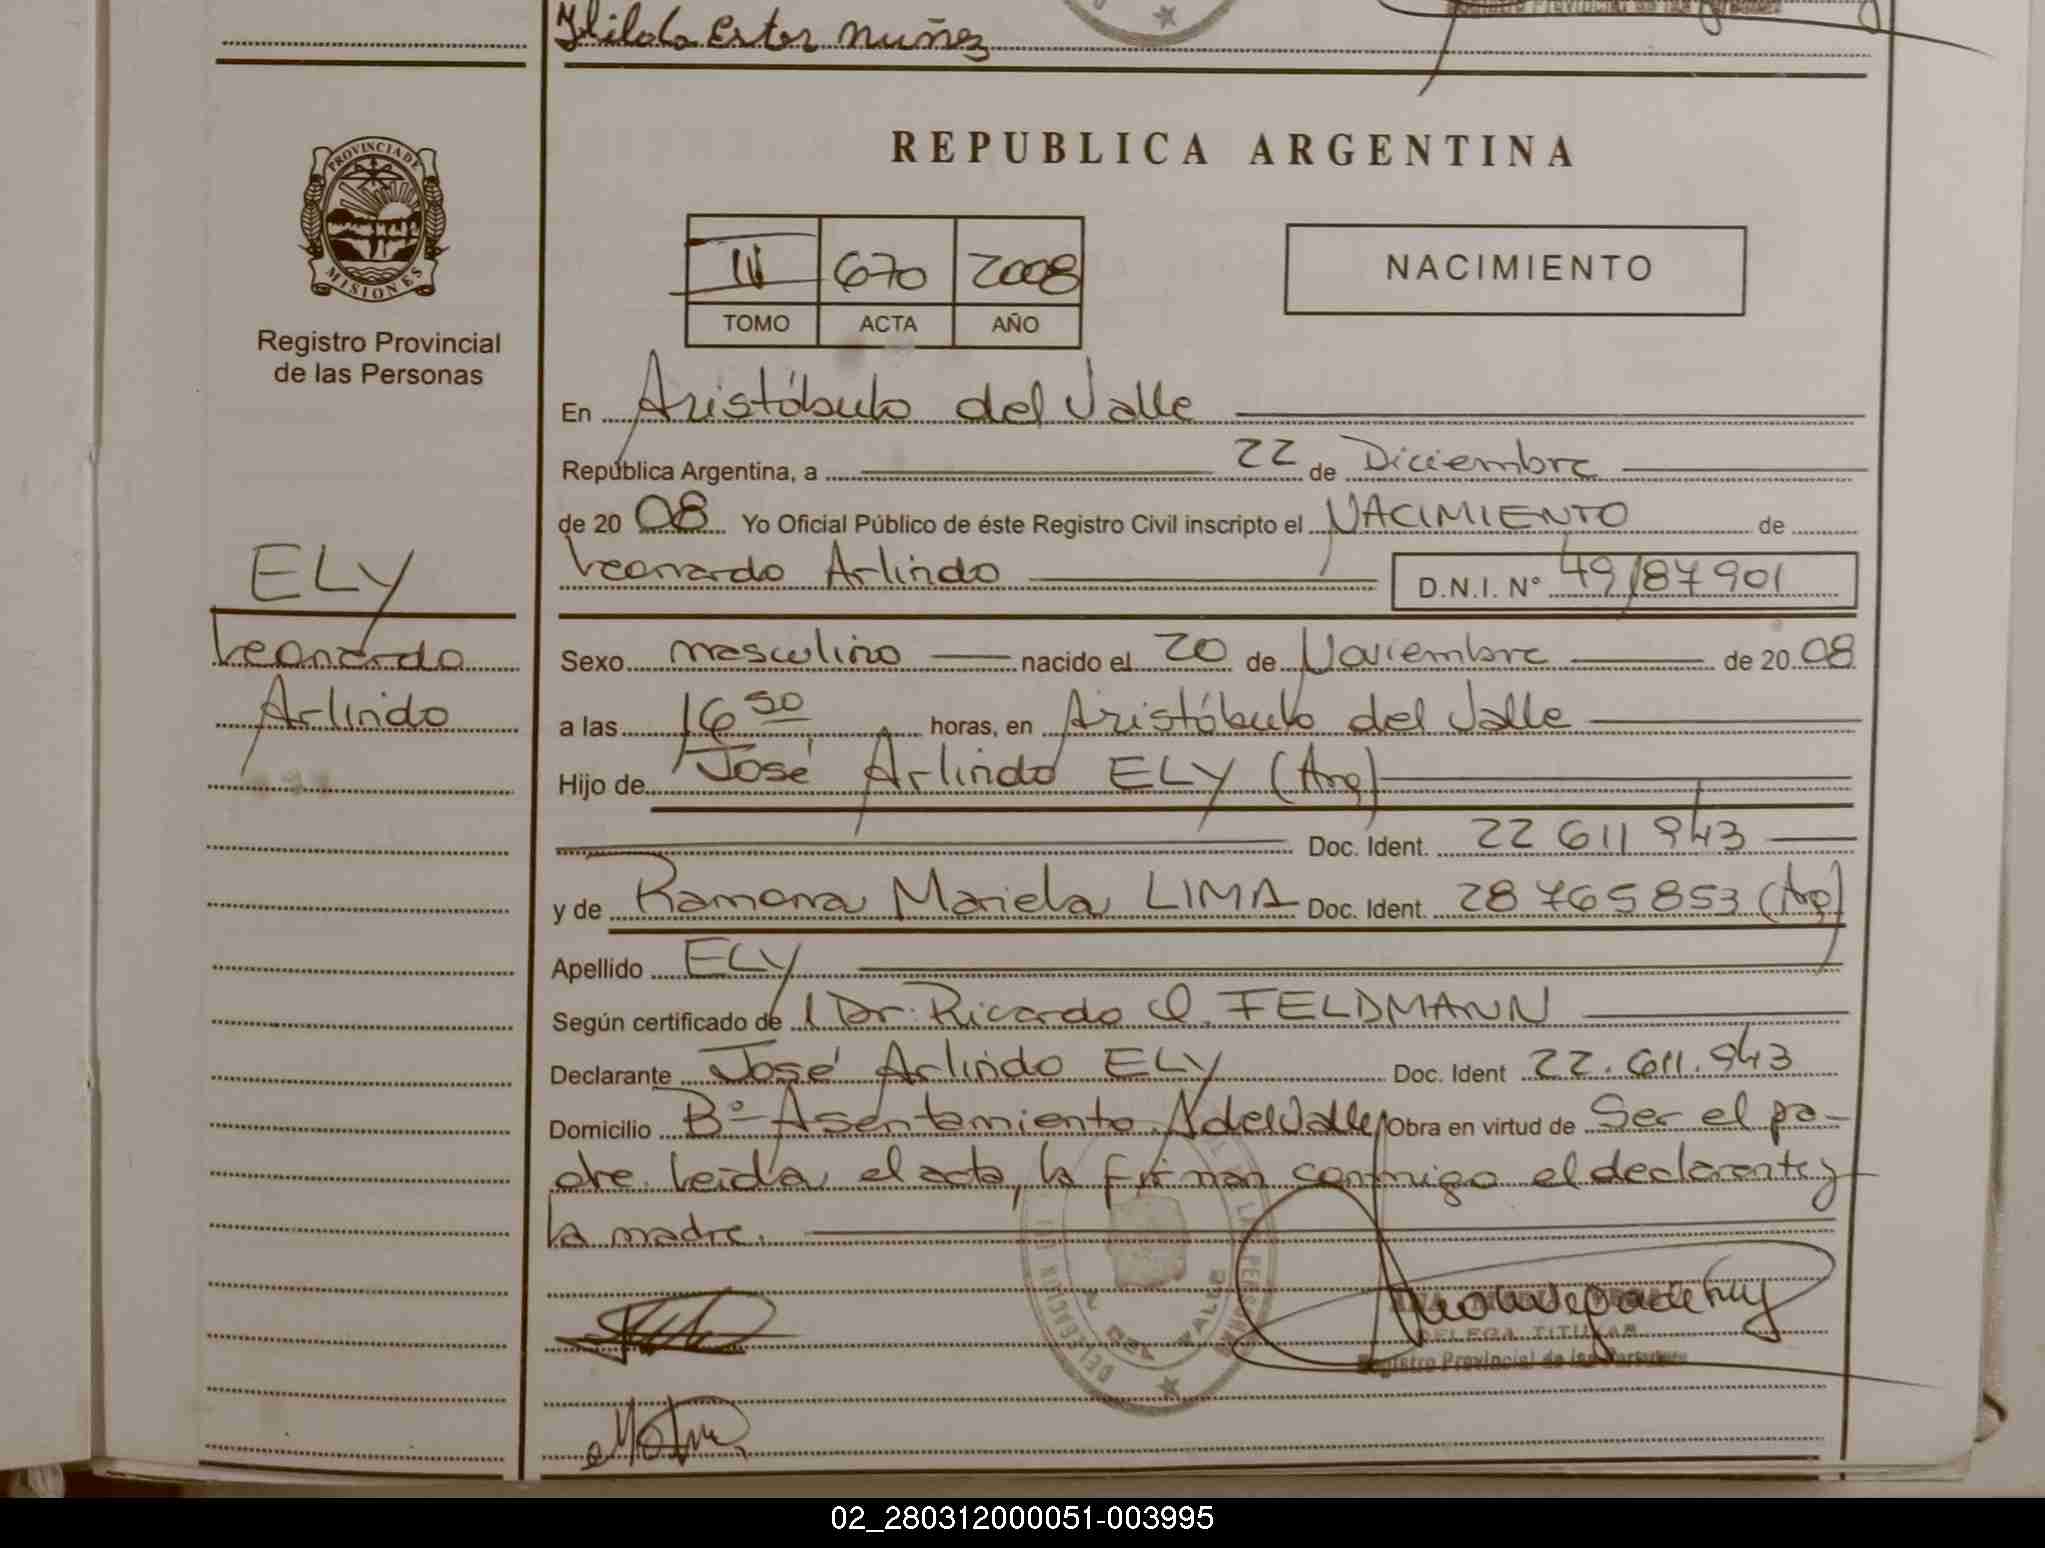 Hilda Ester Nuñez
PROVINCIA DE
MISIONES
Registro Provincial
de las Personas
REPUBLICA ARGENTINA
IV 670 2008
TOMO ACTA AÑO
NACIMIENTO
En Aristóbulo del Valle
República Argentina, a 22 de Diciembre
de 2008 Yo Oficial Público de éste Registro Civil inscripto el NACIMIENTO de
Leonardo Arlindo D.N.I. N° 49187901
ELY
Leonardo
Arlindo
Sexo masculino nacido el 20 de Noviembre de 2008
a las 16 50 horas, en Aristóbulo del Valle
Hijo de José Arlindo ELY (Arg)
Doc. Ident. 22 611 943
y de Ramona Mariela LIMA Doc. Ident. 28 765 853 (Arg)
Apellido ELY
Según certificado de l Dr. Ricardo O. FELDMANN
Declarante José Arlindo ELY Doc. Ident 22.611.943
Domicilio B° Asentamiento AdelValle Obra en virtud de Ser el pa-
dre. Leída el acta, la firman conmigo el declarante y
la madre.
DELEGA TITULAR
Registro Provincial de las Personas
02_280312000051-003995